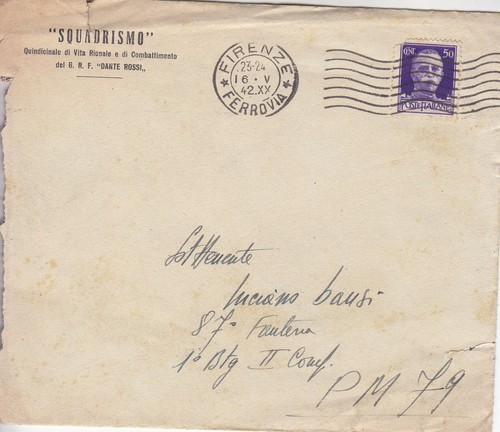 "SQUADRISMO"
Quindicinale di Vita Rionale e di Combattimento
del G. R. F. "DANTE ROSSI„
FIRENZE
23-24
16 · V
42.XX
FERROVIA
CENT. 50
POSTE ITALIANE
Sottotenente
Luciano
87° Fanteria
1° Btg II Comp.
PM 79